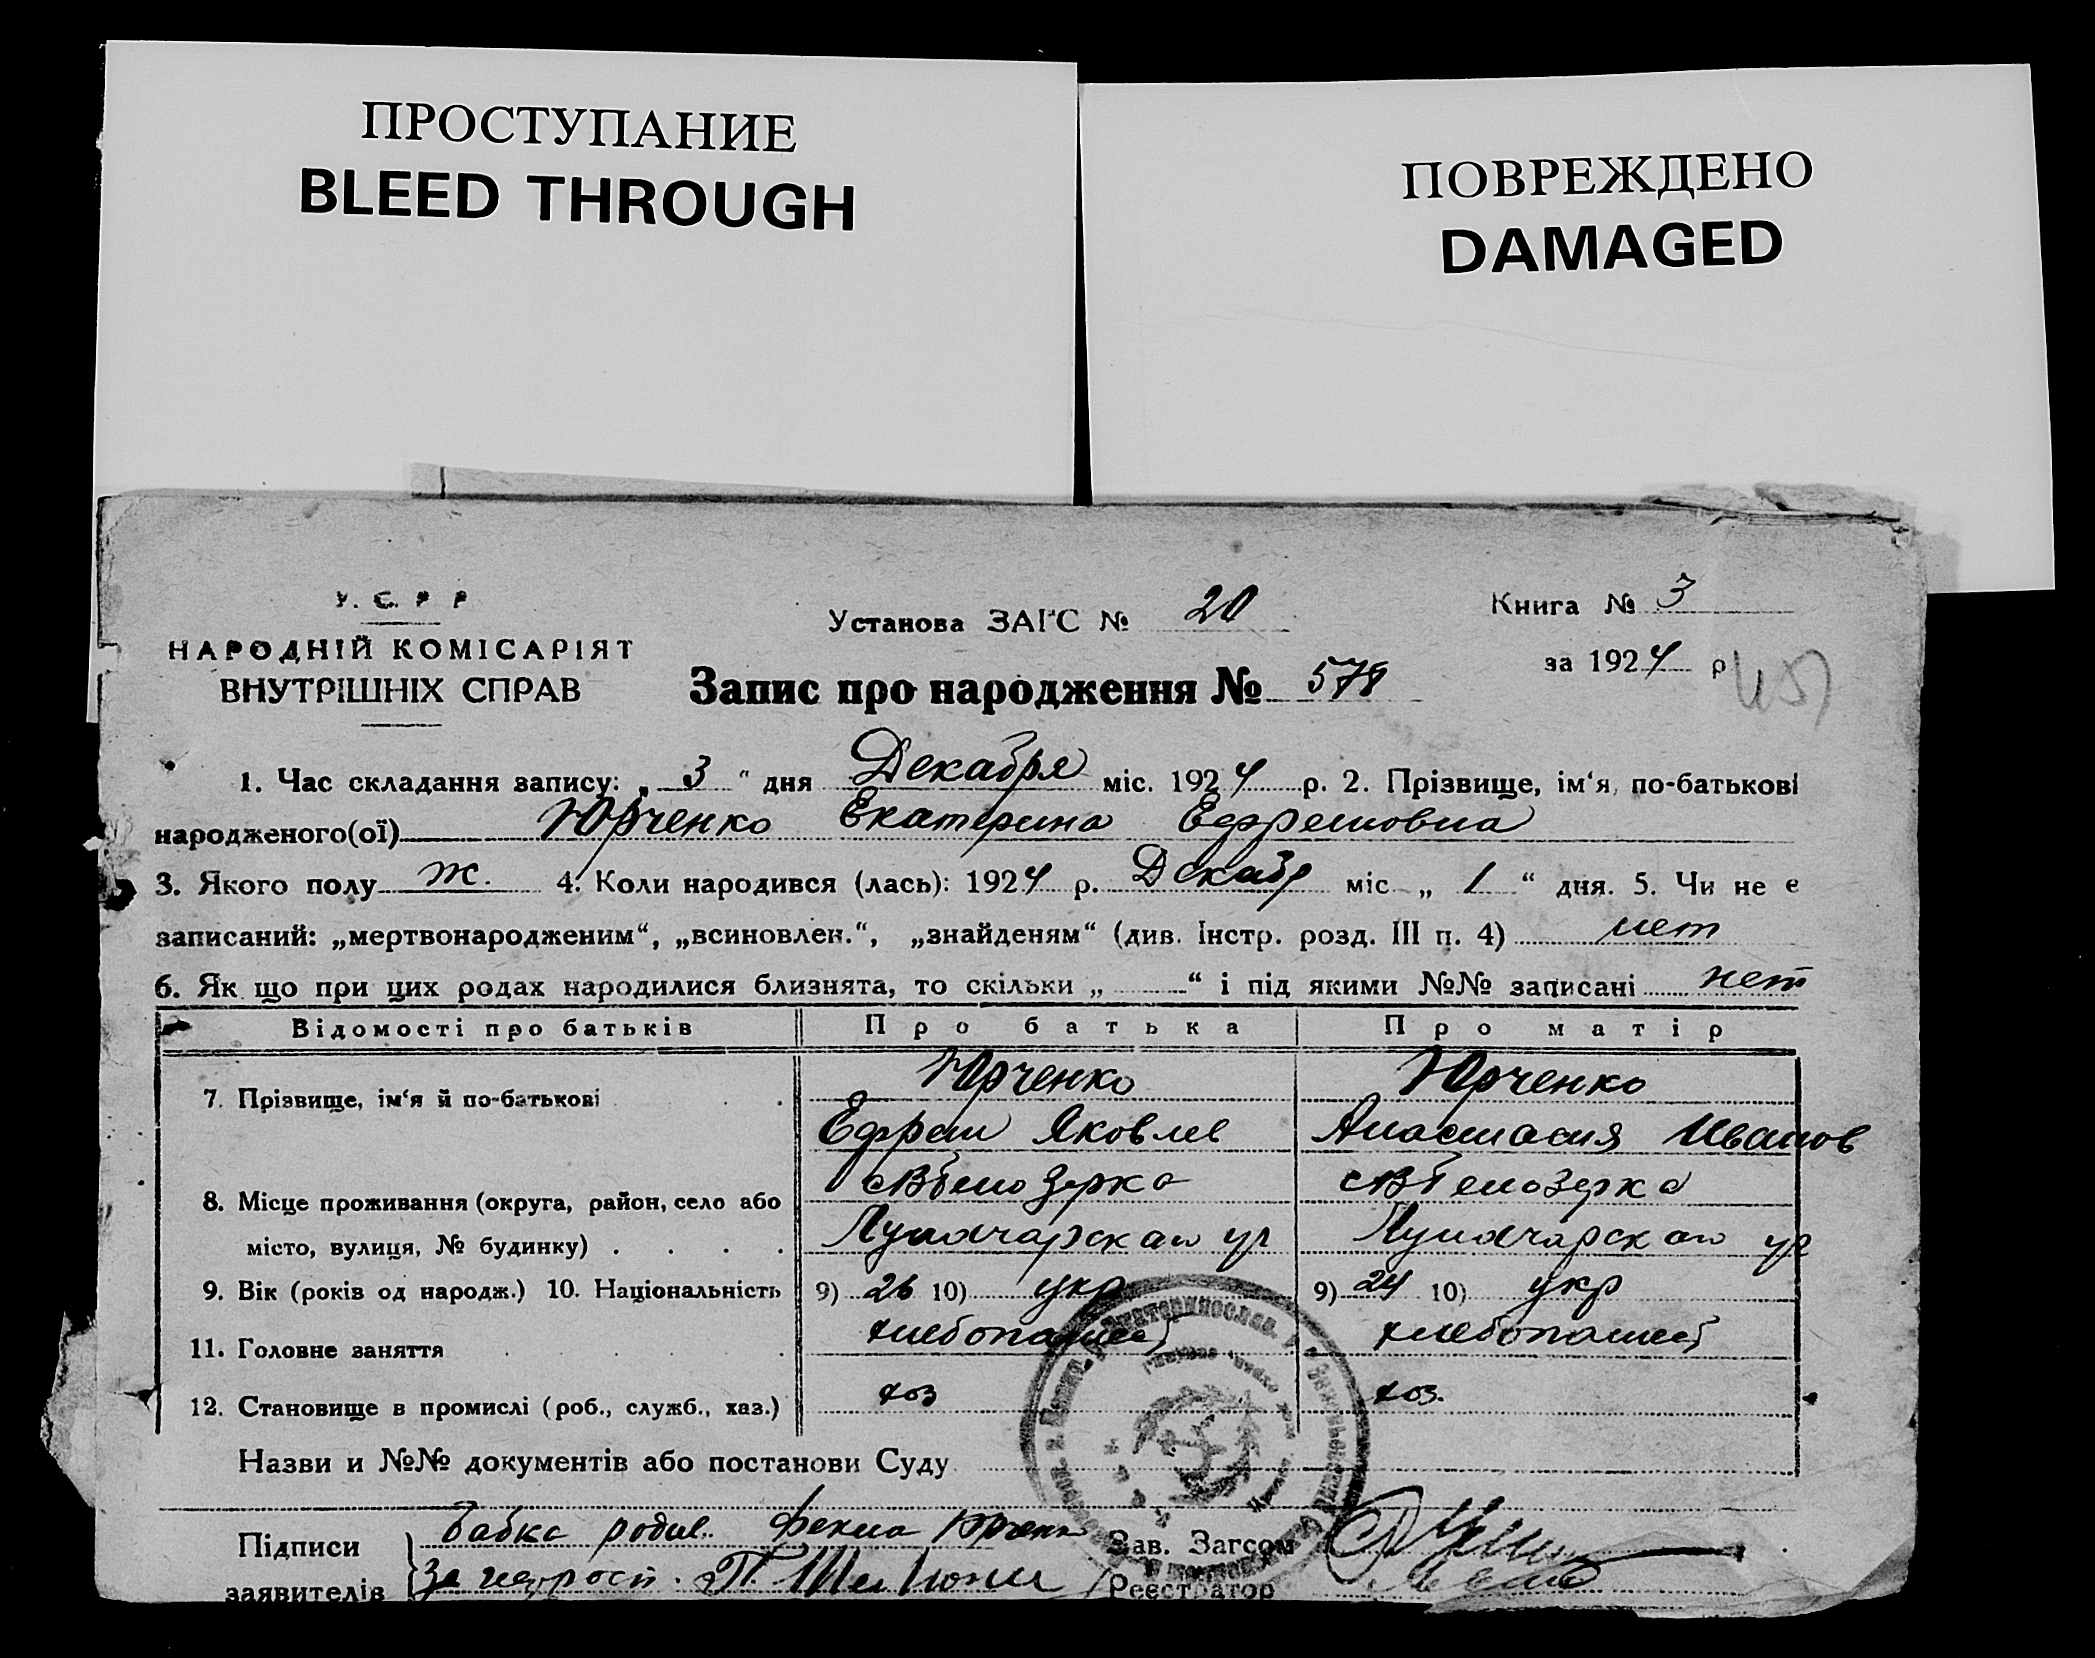 ПРОСТУПАНИЕ
BLEED THROUGH
ПОВРЕЖДЕНО
DAMAGED
У. С. Р. Р
НАРОДНІЙ КОМІСАРІЯТ
ВНУТРІШНІХ СПРАВ
Установа ЗАГС № 20
Книга № 3
за 1924 р
Запис про народження № 578
1. Час складання запису: „ 3 “ дня Декабря міс. 1924 р. 2. Прізвище, ім‘я, по-батькові
народженого(ої) Юрченко Екатерина Ефремовна
3. Якого полу ж. 4. Коли народився (лась): 1924 р. Декабр міс „ 1 “ дня. 5. Чи не є
записаний: „мертвонародженим“, „всиновлен.“, „знайденям“ (див. Інстр. розд. III п. 4) нет
6. Як що при цих родах народилися близнята, то скільки „ “ і під якими №№ записані нет
Відомості про батьків Про батька Про матір
7. Прізвище, ім‘я й по-батькові Юрченко Юрченко
Ефрем Яковлев Анастасия Иванов
8. Місце проживання (округа, район, село або
місто, вулиця, № будинку) Луначарская ул Луначарская ул
9. Вік (років од народж.) 10. Національність 9) 26 10) укр 9) 24 10) укр
11. Головне заняття хлебопашеств хлебопашеств
12. Становище в промислі (роб., служб., хаз.) хоз хоз.
Назви и №№ документів або постанови Суду
Підписи
заявителів
Бабка родив. Фекла Юрченко
За неграмот.
Зав. Загсом
Реєстратор